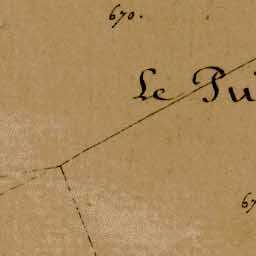 670.
Le Pu
67